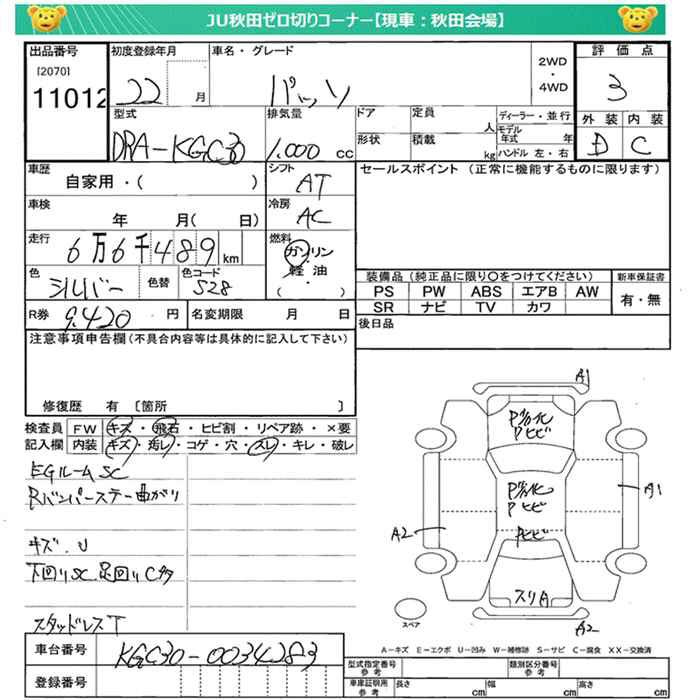 JU秋田ゼロ切りコーナー【現車：秋田会場】
出品番号 初度登録年月 車名・グレード 2WD ・ 4WD 評価点
[2070] 11012 22 月 パッソ 3
型式 排気量 ドア 定員 人 ディーラー・並行 外装 内装
DBA-KGC30 1.000 cc 形状 積載 kg モデル年式 年 ハンドル 左・右 D C
車歴 シフト セールスポイント (正常に機能するものに限ります)
自家用・( ) AT
車検 冷房
年 月( 日) AC
走行 燃料
6万6千489 km ガソリン
色 色替 色コード 軽油
シルバー 528 ( )
装備品(純正品に限り○をつけてください) 新車保証書
PS PW ABS エアB AW 有・無
SR ナビ TV カワ
R券 9.420 円 名変期限 月 日 後日品
注意事項申告欄(不具合内容等は具体的に記入して下さい)
修復歴 有 〔箇所 〕
検査員 FW キズ・飛石・ヒビ割・リペア跡・×要
記入欄 内装 キズ・汚レ・コゲ・穴・スレ・キレ・破レ
EGルームSC
Rバンパーステー曲がり
キズ.U
下回りSC.足回りC
スタッドレスT
A1
Pガ化
Pヒビ
Pガ化
Pヒビ
A1
A2
Pヒビ
スリA
スペア
A2
A-キズ E-エクボ U-凹み W-補修跡 S-サビ C-腐食 XX-交換済
車台番号 KGC30-0034283
登録番号
型式指定番号 参考 類別区分番号 参考
車庫証明用 参考 長さ cm 幅 cm 高さ cm